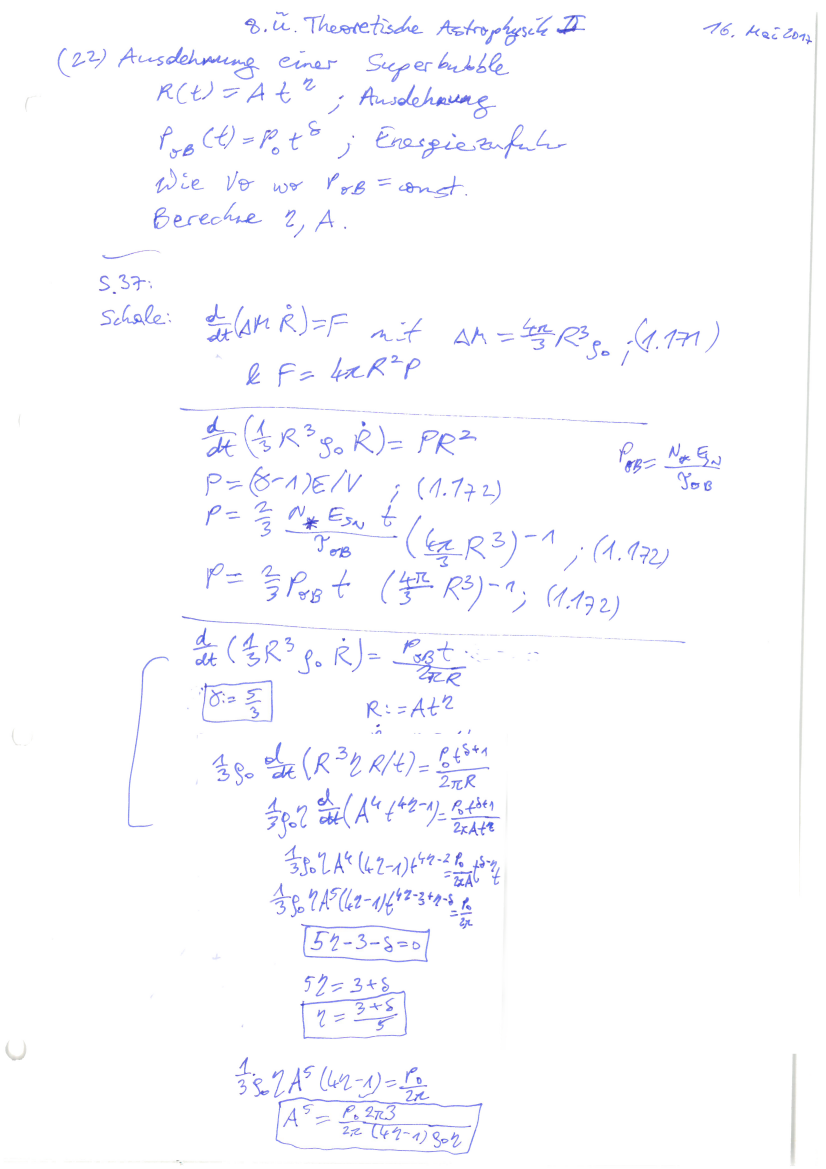 8. Ü. Theoretische Astrophysik II 16. Mai 2017
(22) Ausdehnung einer Superbubble
R(t) = A t^η ; Ausdehnung
P_OB(t) = P_0 t^δ ; Energiezufuhr
Wie Vo wo P_OB = const.
Berechne η, A.
S.37:
Schale: d/dt (ΔM Ṙ) = F mit ΔM = 4π/3 R^3 ρ_0 ; (1.171)
& F = 4πR^2P
d/dt (1/3 R^3 ρ_0 Ṙ) = PR^2
P_OB = N_* E_SN / τ_OB
P = (γ-1)E/V ; (1.172)
P = 2/3 N_* E_SN t / τ_OB (4π/3 R^3)^-1 ; (1.172)
P = 2/3 P_OB t (4π/3 R^3)^-1 ; (1.172)
d/dt (1/3 R^3 ρ_0 Ṙ) = P_OB t / 2πR
γ := 5/3 R := At^η
1/3 ρ_0 d/dt (R^3 η R/t) = P_0 t^δ+1 / 2πR
1/3 ρ_0 η d/dt (A^4 t^4η-1) = P_0 t^δ+1 / 2πAt^η
1/3 ρ_0 η A^4 (4η-1) t^4η-2 = P_0/2πA t^δ-η t
1/3 ρ_0 η A^5 (4η-1) t^4η-3+η-δ = P_0/2π
5η-3-δ=0
5η = 3+δ
η = 3+δ / 5
1/3 ρ_0 η A^5 (4η-1) = P_0/2π
A^5 = P_0 2π3 / 2π (4η-1) ρ_0 η